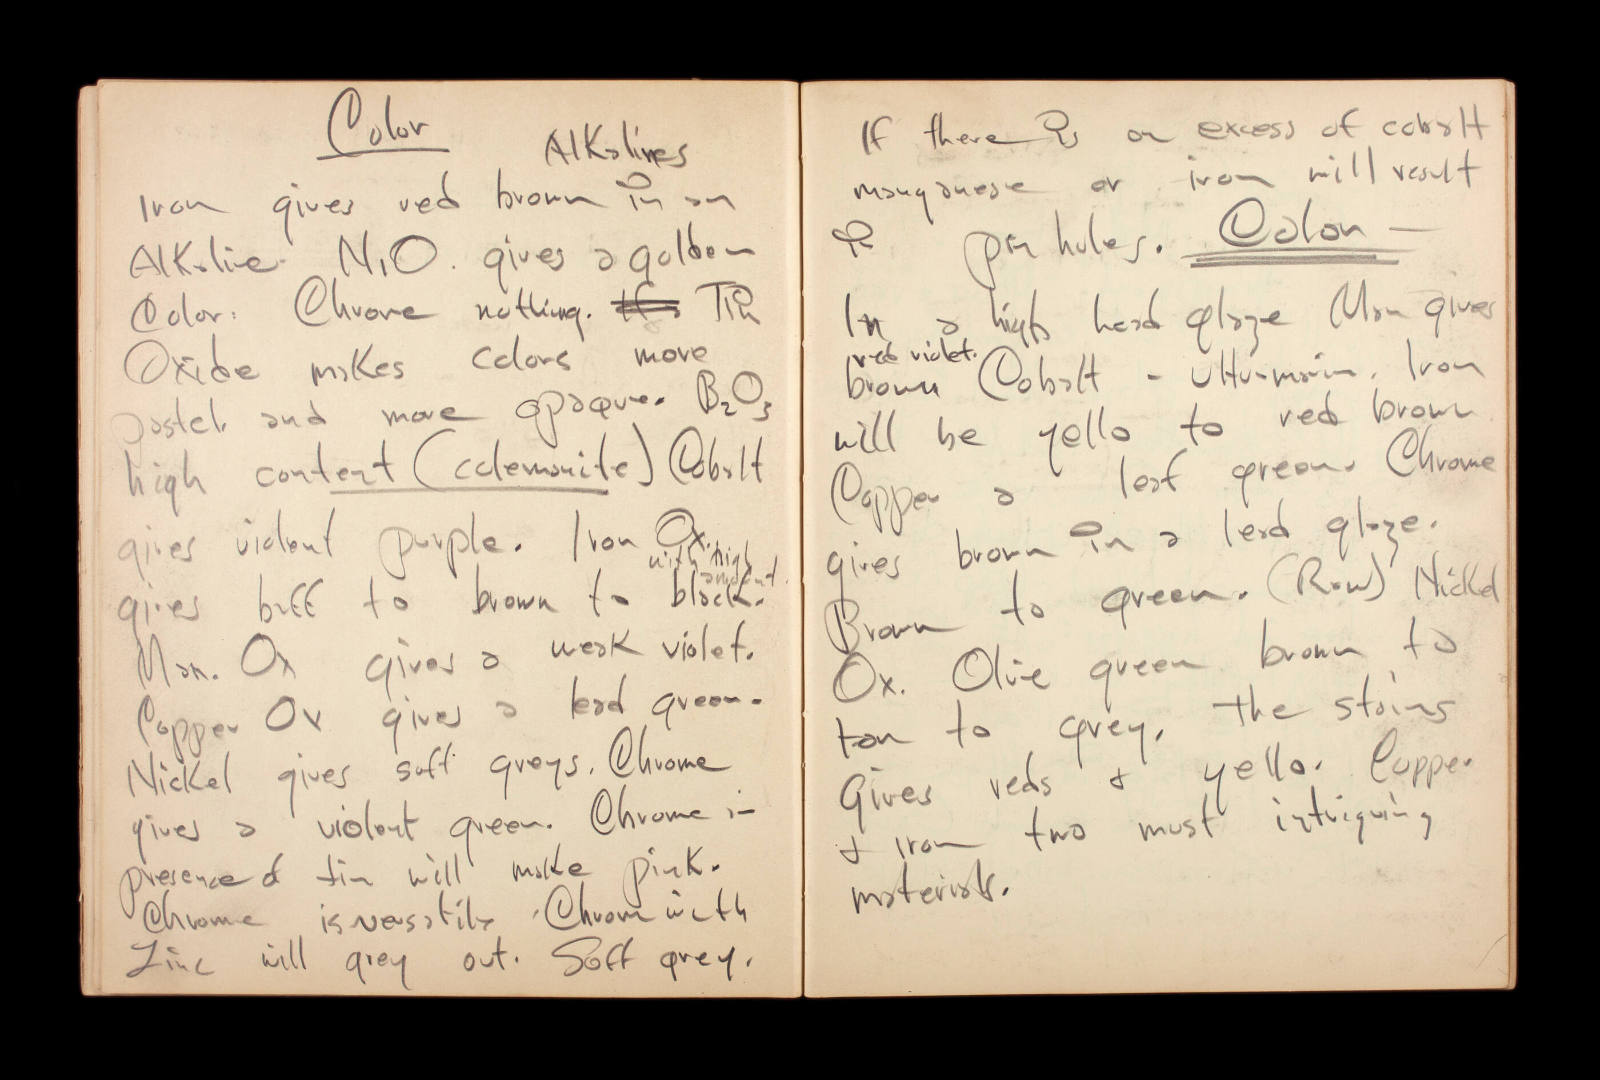 Color
Alkalines
Iron gives red brown in an
Alkaline. N,O. gives a golden
Color. Chrome nothing. Tin
Oxide makes colors more
pastel. and more opaque. B2O3
high content (colemonite) Cobalt
gives violent purple. Iron Ox.
with high
amount.
gives buff to brown to black.
Man. Ox gives a weak violet.
Copper Ox gives a lead green.
Nickel gives soft greys. Chrome
gives a violent green. Chrome in
presence of tin will make pink.
Chrome is versatile. Chrome with
Zinc will grey out. Soft grey.
If there is an excess of cobalt
manganese or iron will result
in pin holes. Color —
In a high lead glaze Man gives
red violet.
brown Cobalt - ultramarin. Iron
will be yello to red brown
Copper a leaf green. Chrome
gives brown in a lead glaze.
Brown to green. (Raw) Nickel
Ox. Olive green brown to
tan to grey. The stains
Gives reds & yello. Copper
& iron two must intriguing
materials.